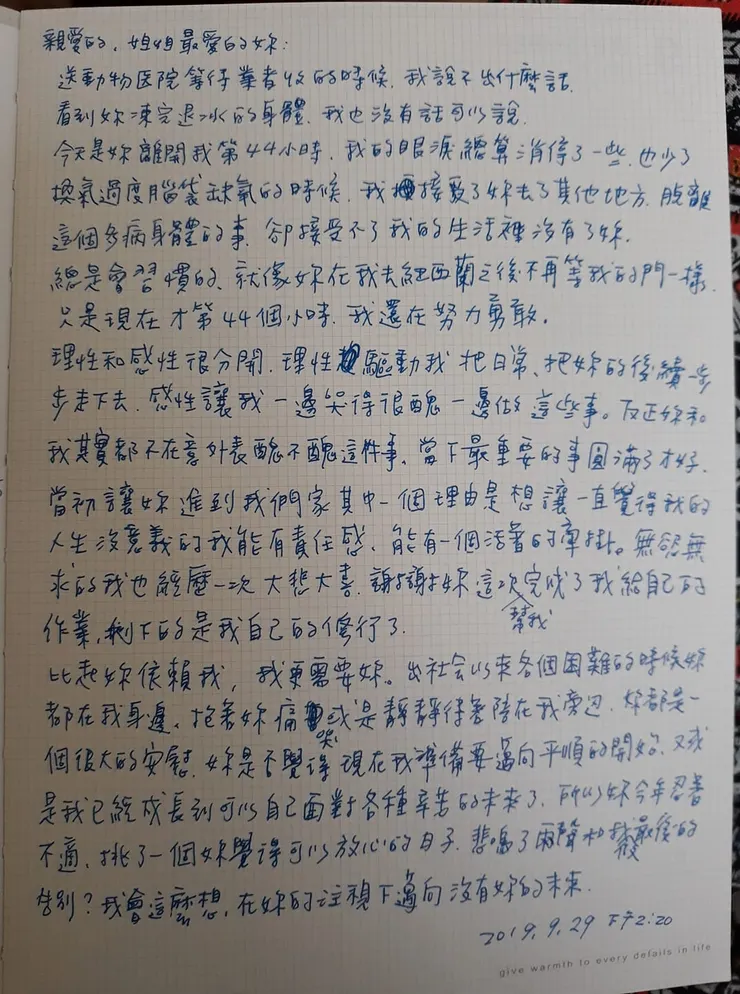 親愛的，姐姐最愛的妳：
送動物医院等待業者收的時候，我說不出什麼話，
看到妳凍完退冰的身體，我也沒有話可以說，
今天是妳離開我第44小時，我的眼淚總算消停了一些，也少了
換氣過度腦袋缺氧的時候，我接受了妳去了其他地方，脫離
這個多病身體的事，卻接受不了我的生活裡沒有了妳，
總是會習慣的，就像妳在我去紐西蘭之後不再等我的門一樣，
只是現在才第44個小時，我還在努力勇敢。
理性和感性很分開，理性驅動我把日常、把妳的後續一步
步走下去，感性讓我一邊哭得很醜一邊做這些事。反正妳和
我其實都不在意外表醜不醜這件事，當下最重要的事圓滿了才好，
當初讓妳進到我們家其中一個理由是想讓一直覺得我的
人生沒意義的我能有責任感，能有一個活著的牽掛。無慾無
求的我也經歷一次大悲大喜，謝謝妳這次幫我完成了我給自己的
作業，剩下的是我自己的修行了，
比起妳依賴我，我更需要妳。出社會以來各個困難的時候妳
都在我身邊，抱著妳痛哭或是靜靜待著陪在我旁边，妳都是一
個很大的安慰，妳是否覺得現在我準備要邁向平順的開始，又或
是我已經成長到可以自己面對各種辛苦的未來了，所以妳今年忍著
不適，挑了一個妳覺得可以放心的日子，悲鳴了兩聲和我最後的
告別？我會這麼想，在妳的注視下邁向沒有妳的未來．
2019.9.29 下午2:20
give warmth to every details in life